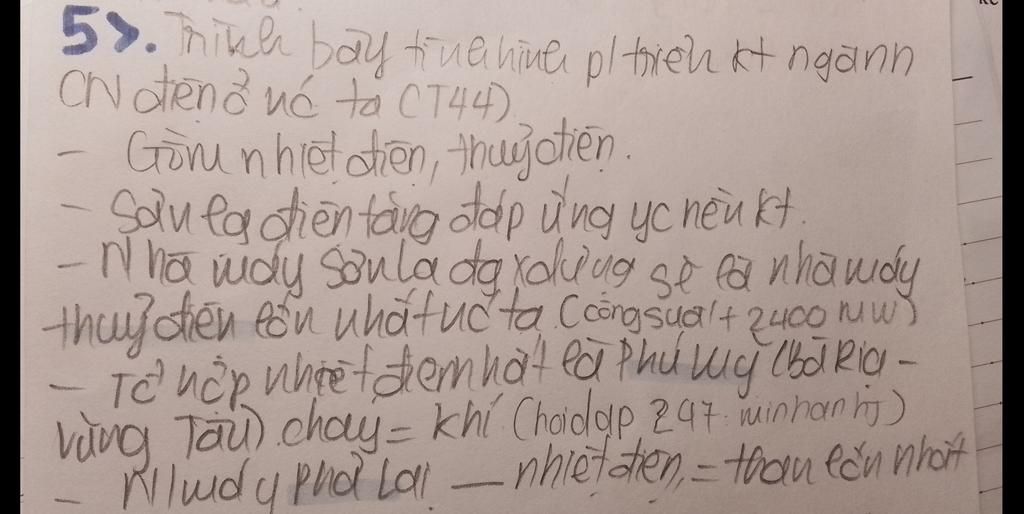 5>. Trình bày tình hình p/triển kt ngành
CN điện ở nc ta (T44)
- Gồm nhiệt điện, thuỷ điện.
- Sản lg điện tăng đáp ứng yc nền kt.
- Nhà máy Sơn La đg xdựng sẽ là nhà máy
thuỷ điện lớn nhất nc ta (công suất + 2400 MW)
- Tổ hợp nhiệt điện nhất là Phú Mỹ (bà Rịa -
Vũng Tàu) chạy = khí (hoidap 247. minhanhhj)
- N/máy Phả Lại — nhiệt điện, = than lớn nhất